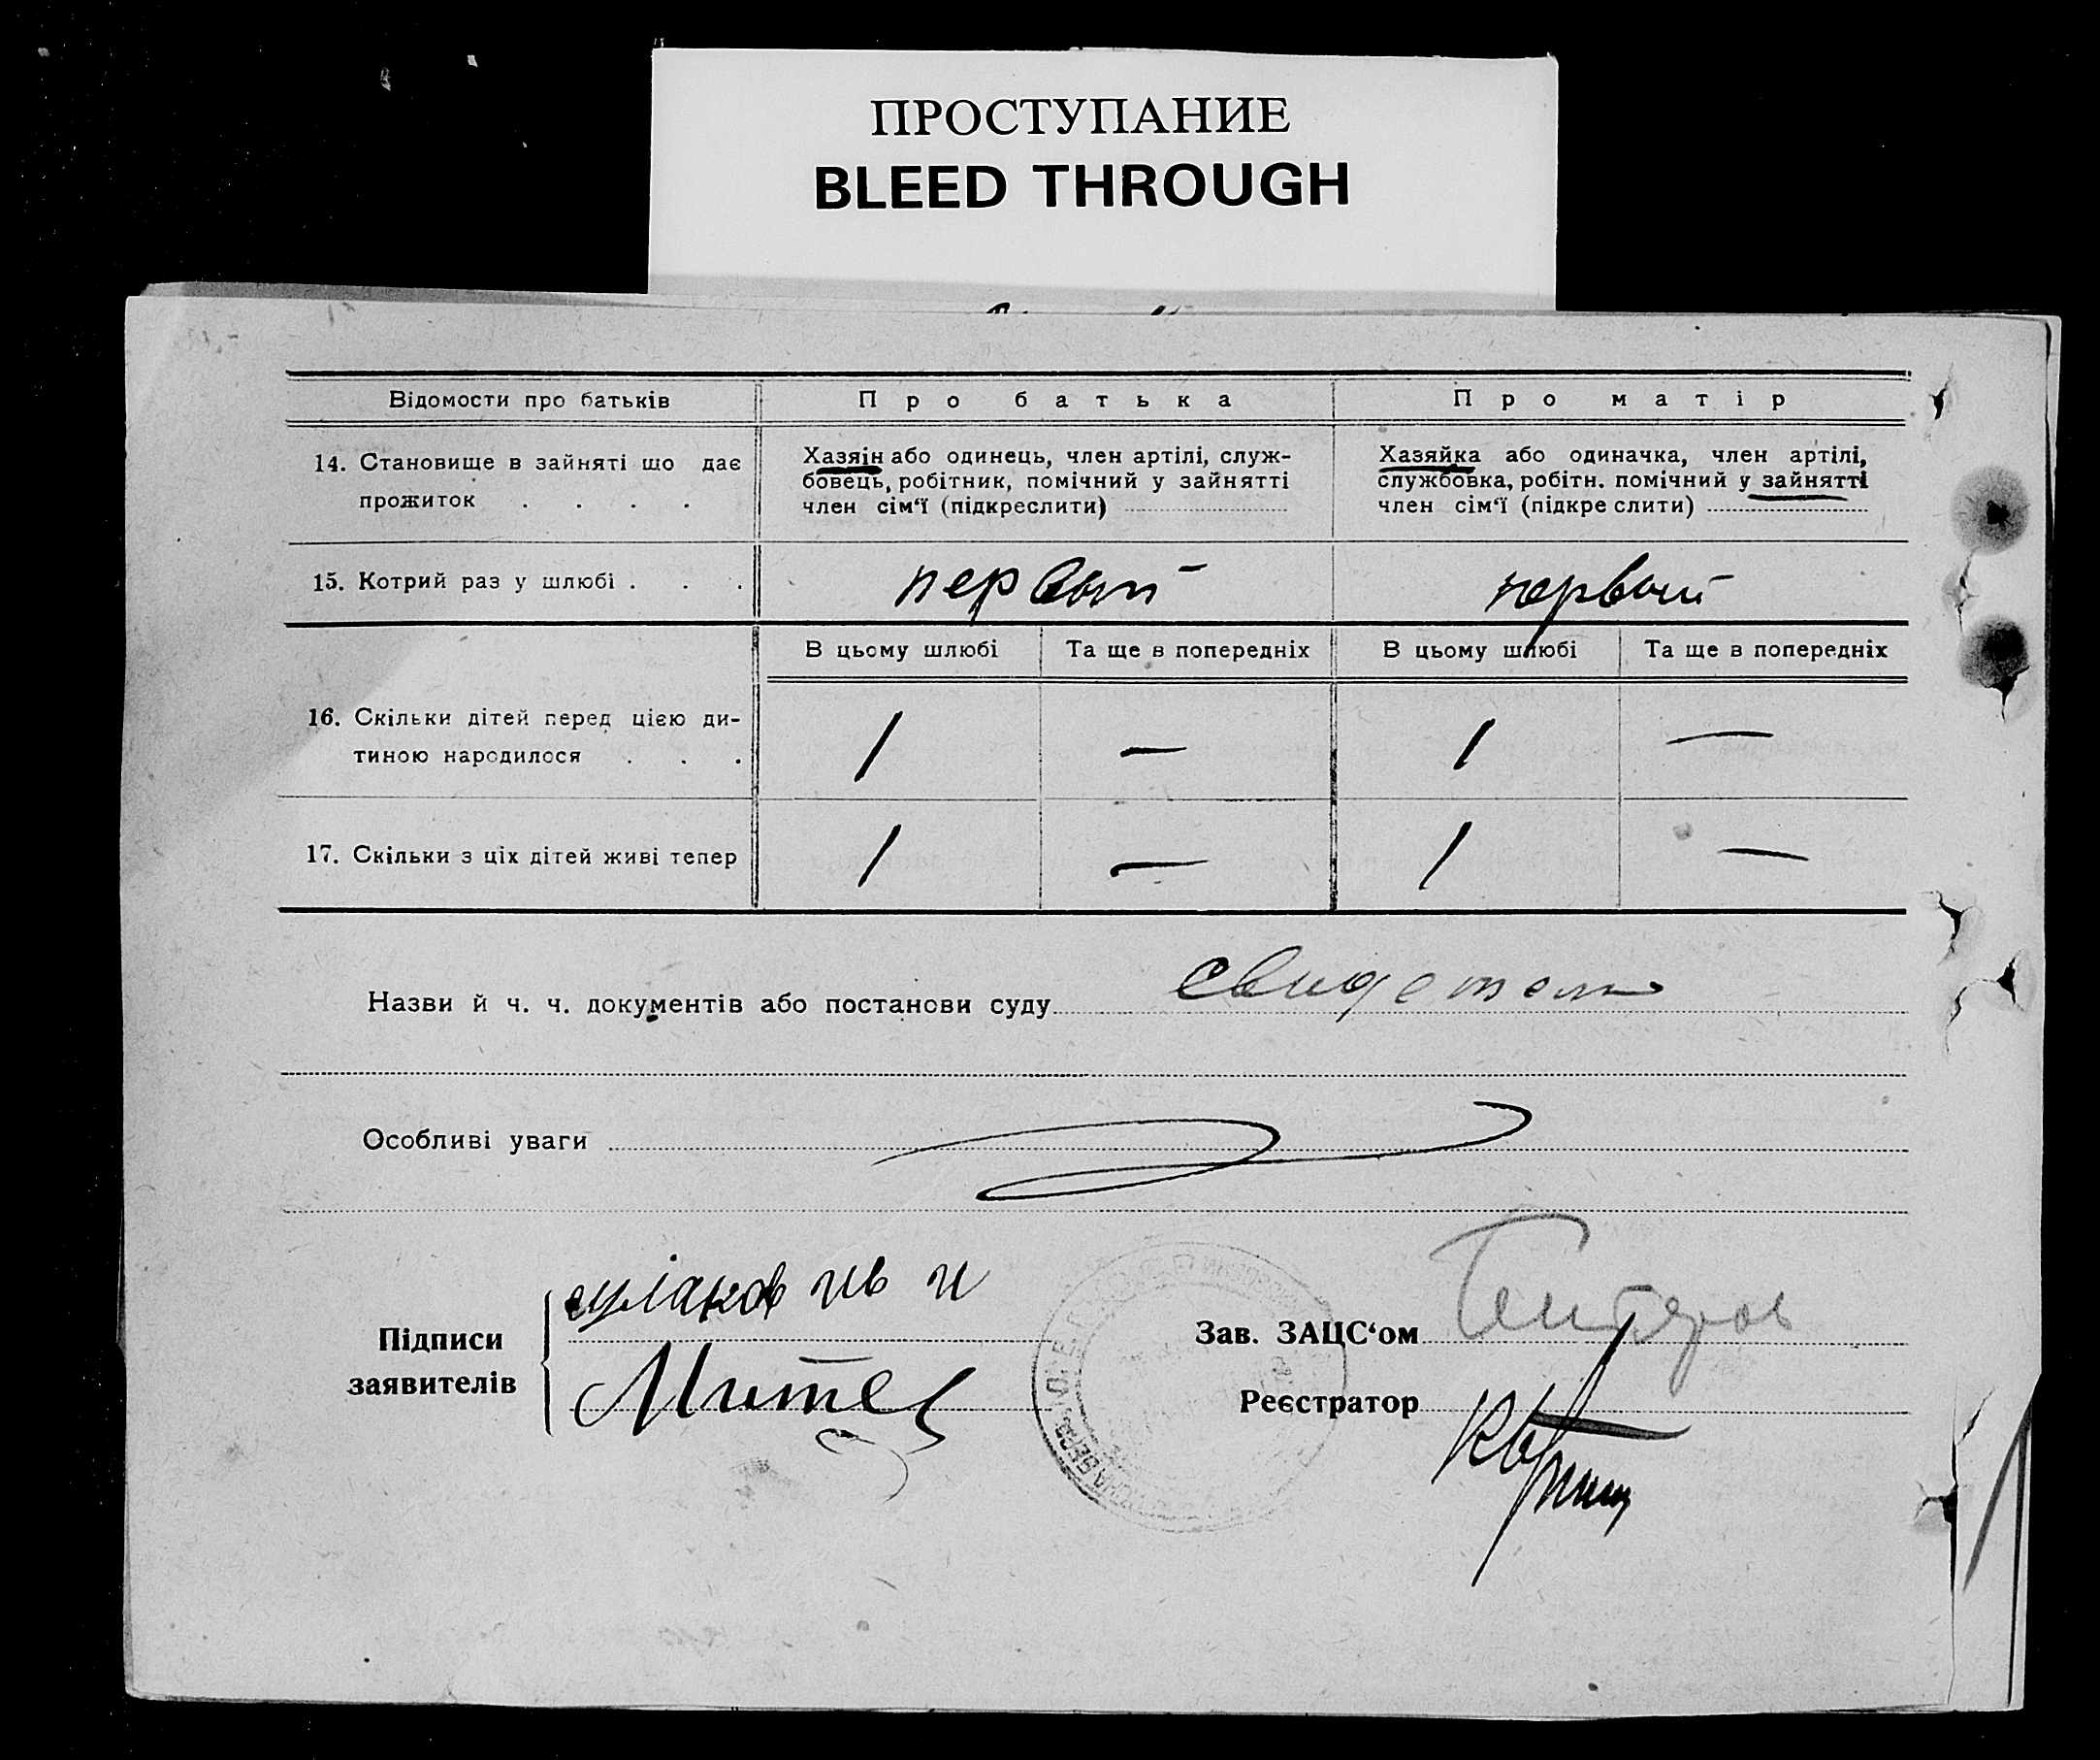 ПРОСТУПАНИЕ
BLEED THROUGH
Відомости про батьків
Про батька
Про матір
14. Становище в зайняті що дає
прожиток . . . .
Хазяін або одинець, член артілі, служ-
бовець, робітник, помічний у зайнятті
член сім‘ї (підкреслити)
Хазяйка або одиначка, член артілі,
службовка, робітн. помічний у зайнятті
член сім‘ї (підкре слити)
15. Котрий раз у шлюбі . . .
первый
первый
В цьому шлюбі
Та ще в попередніх
В цьому шлюбі
Та ще в попередніх
16. Скільки дітей перед цією ди-
тиною народилося . . .
1
—
1
—
17. Скільки з ціх дітей живі тепер
1
—
1
—
Назви й ч. ч. документів або постанови суду
Особливі уваги
Підписи
заявителів
Зав. ЗАЦС‘ом
Реєстратор